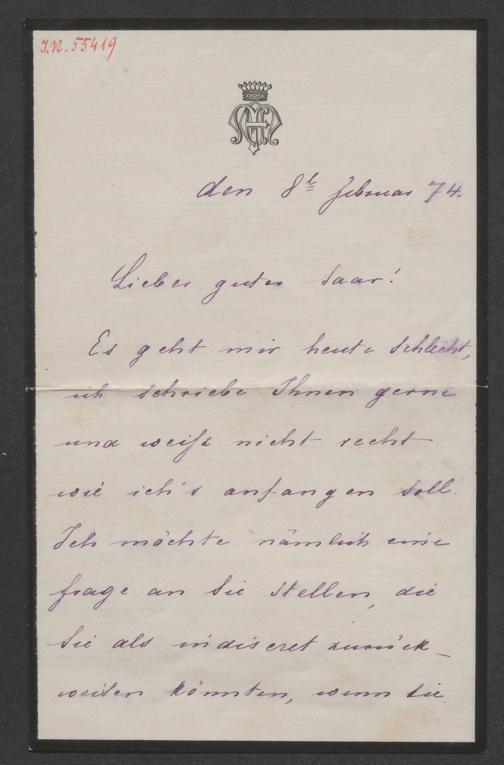 I.N. 55419
den 8t Februar 74.
Lieber guter Saar!
Es geht mir heute schlecht,
ich schriebe Ihnen gerne
und weiß nicht recht
wie ich's anfangen soll.
Ich möchte nämlich eine
Frage an Sie stellen, die
Sie als indiscret zurück-
weisen könnten, wenn Sie